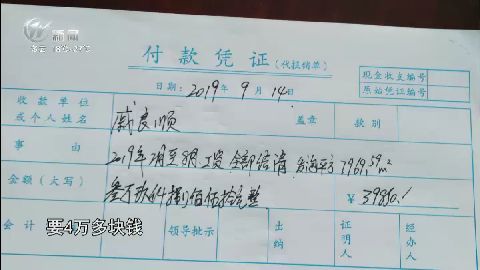 新闻
多云 18℃-27℃
付款凭证(代报销单)
日期:2019年9月14日
现金收支编号
原始凭证编号
收款单位或个人姓名 戚良顺 盖章 款别
事由 2019年 月至8月工资全部结清 7969.59m²
金额(大写) 叁万玖仟捌佰伍拾元整 ¥39850.
会计 领导批示 出纳 证明人 经办人
要4万多块钱